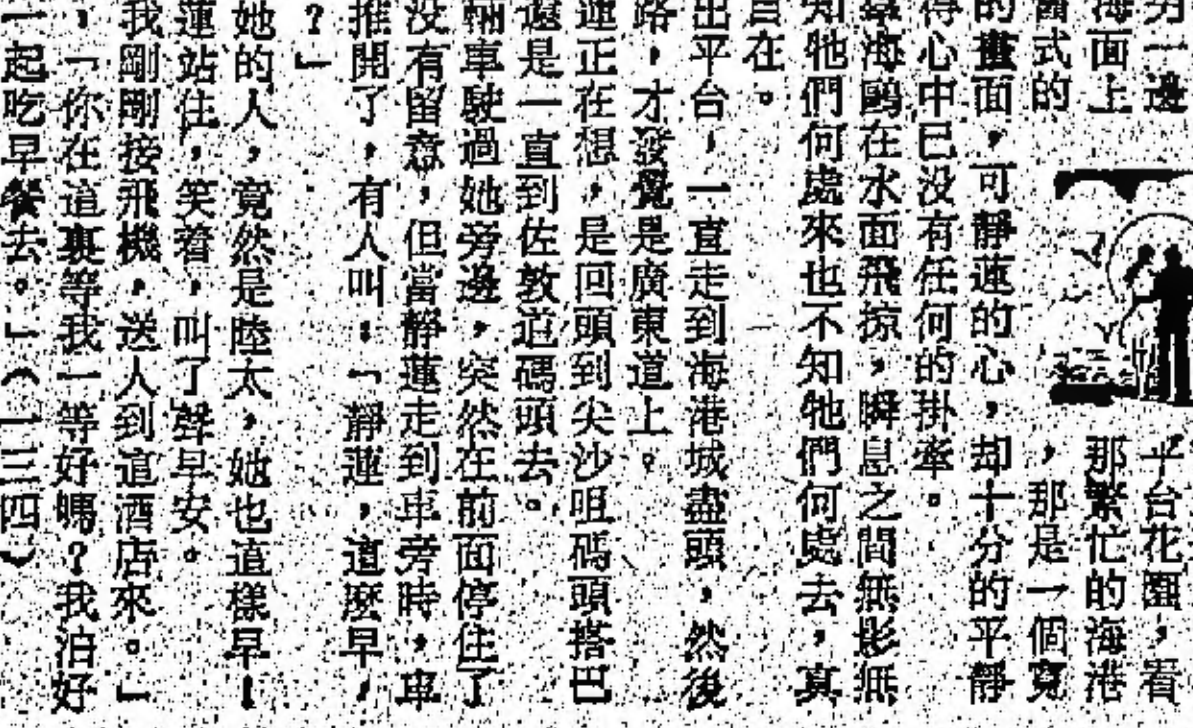 另一邊平台花園，看
海面上那繁忙的海港
式的，那是一個寬
的畫面，可靜蓮的心，却十分的平靜
得心中已没有任何的掛牽。
羣海鷗在水面飛掠，瞬息之間無影無
知牠們何處來也不知牠們何處去，真
自在。
出平台，一直走到海港城盡頭，然後
路，才發覺是廣東道上。
蓮正在想，是回頭到尖沙咀碼頭搭巴
還是一直到佐敦道碼頭去。
輛車駛過她旁邊，突然在前面停住了
没有留意，但當靜蓮走到車旁時，車
推開了，有人叫：「靜蓮，這麼早，
？」
她的人，竟然是陸太，她也這樣早！
蓮站住，笑着，叫了聲早安。
我剛剛接飛機，送人到這酒店來。」
，「你在這裏等我一等好嗎？我泊好
一起吃早餐去。」（一三四）